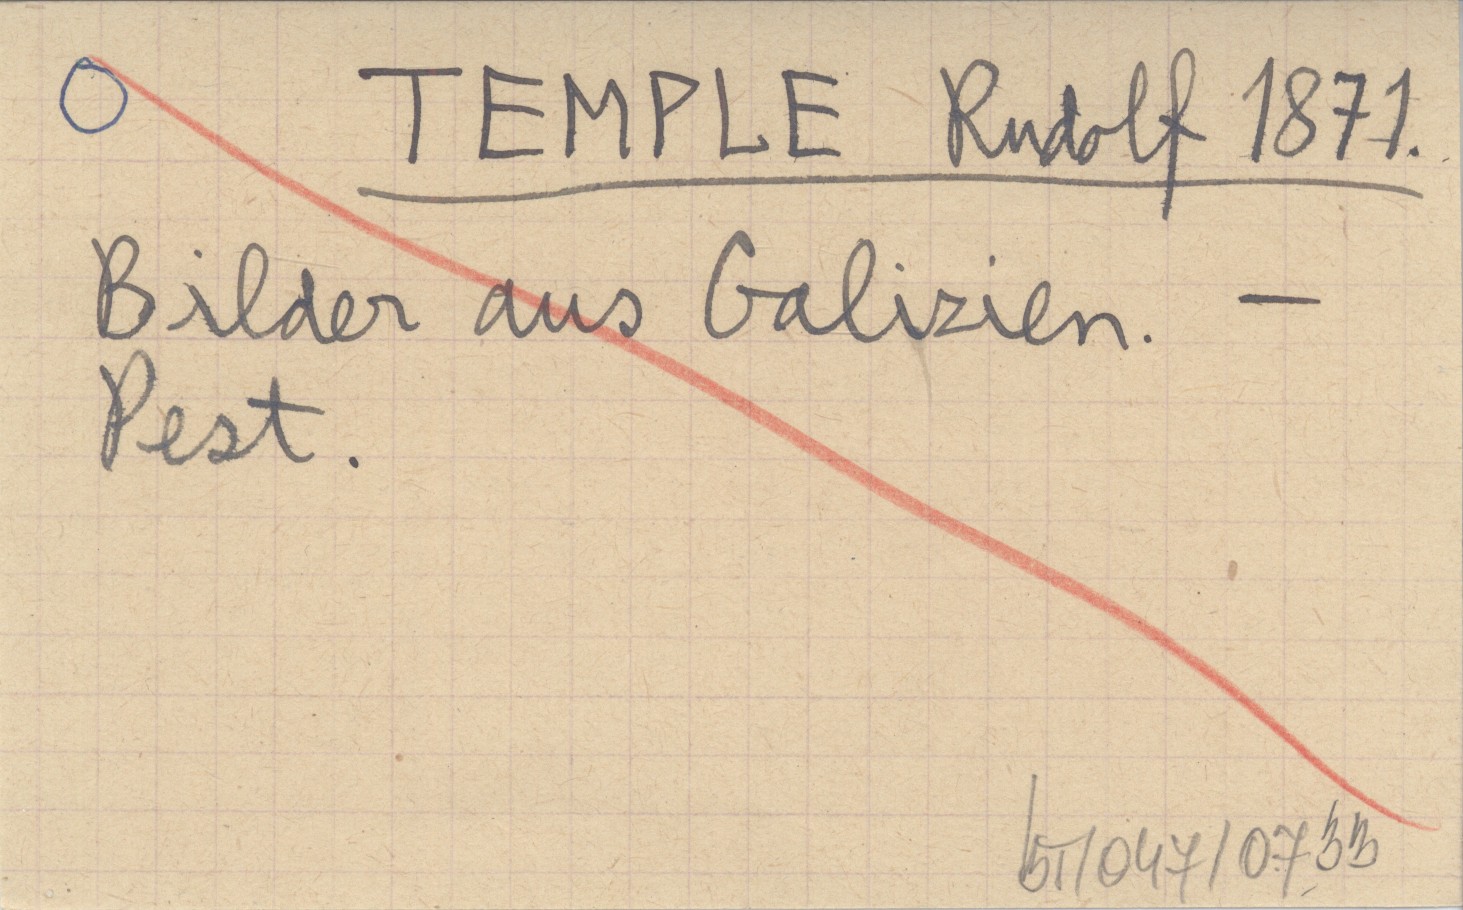 TEMPLE Rudolf 1871.
Bilder aus Galizien. —
Pest.
/047/0733